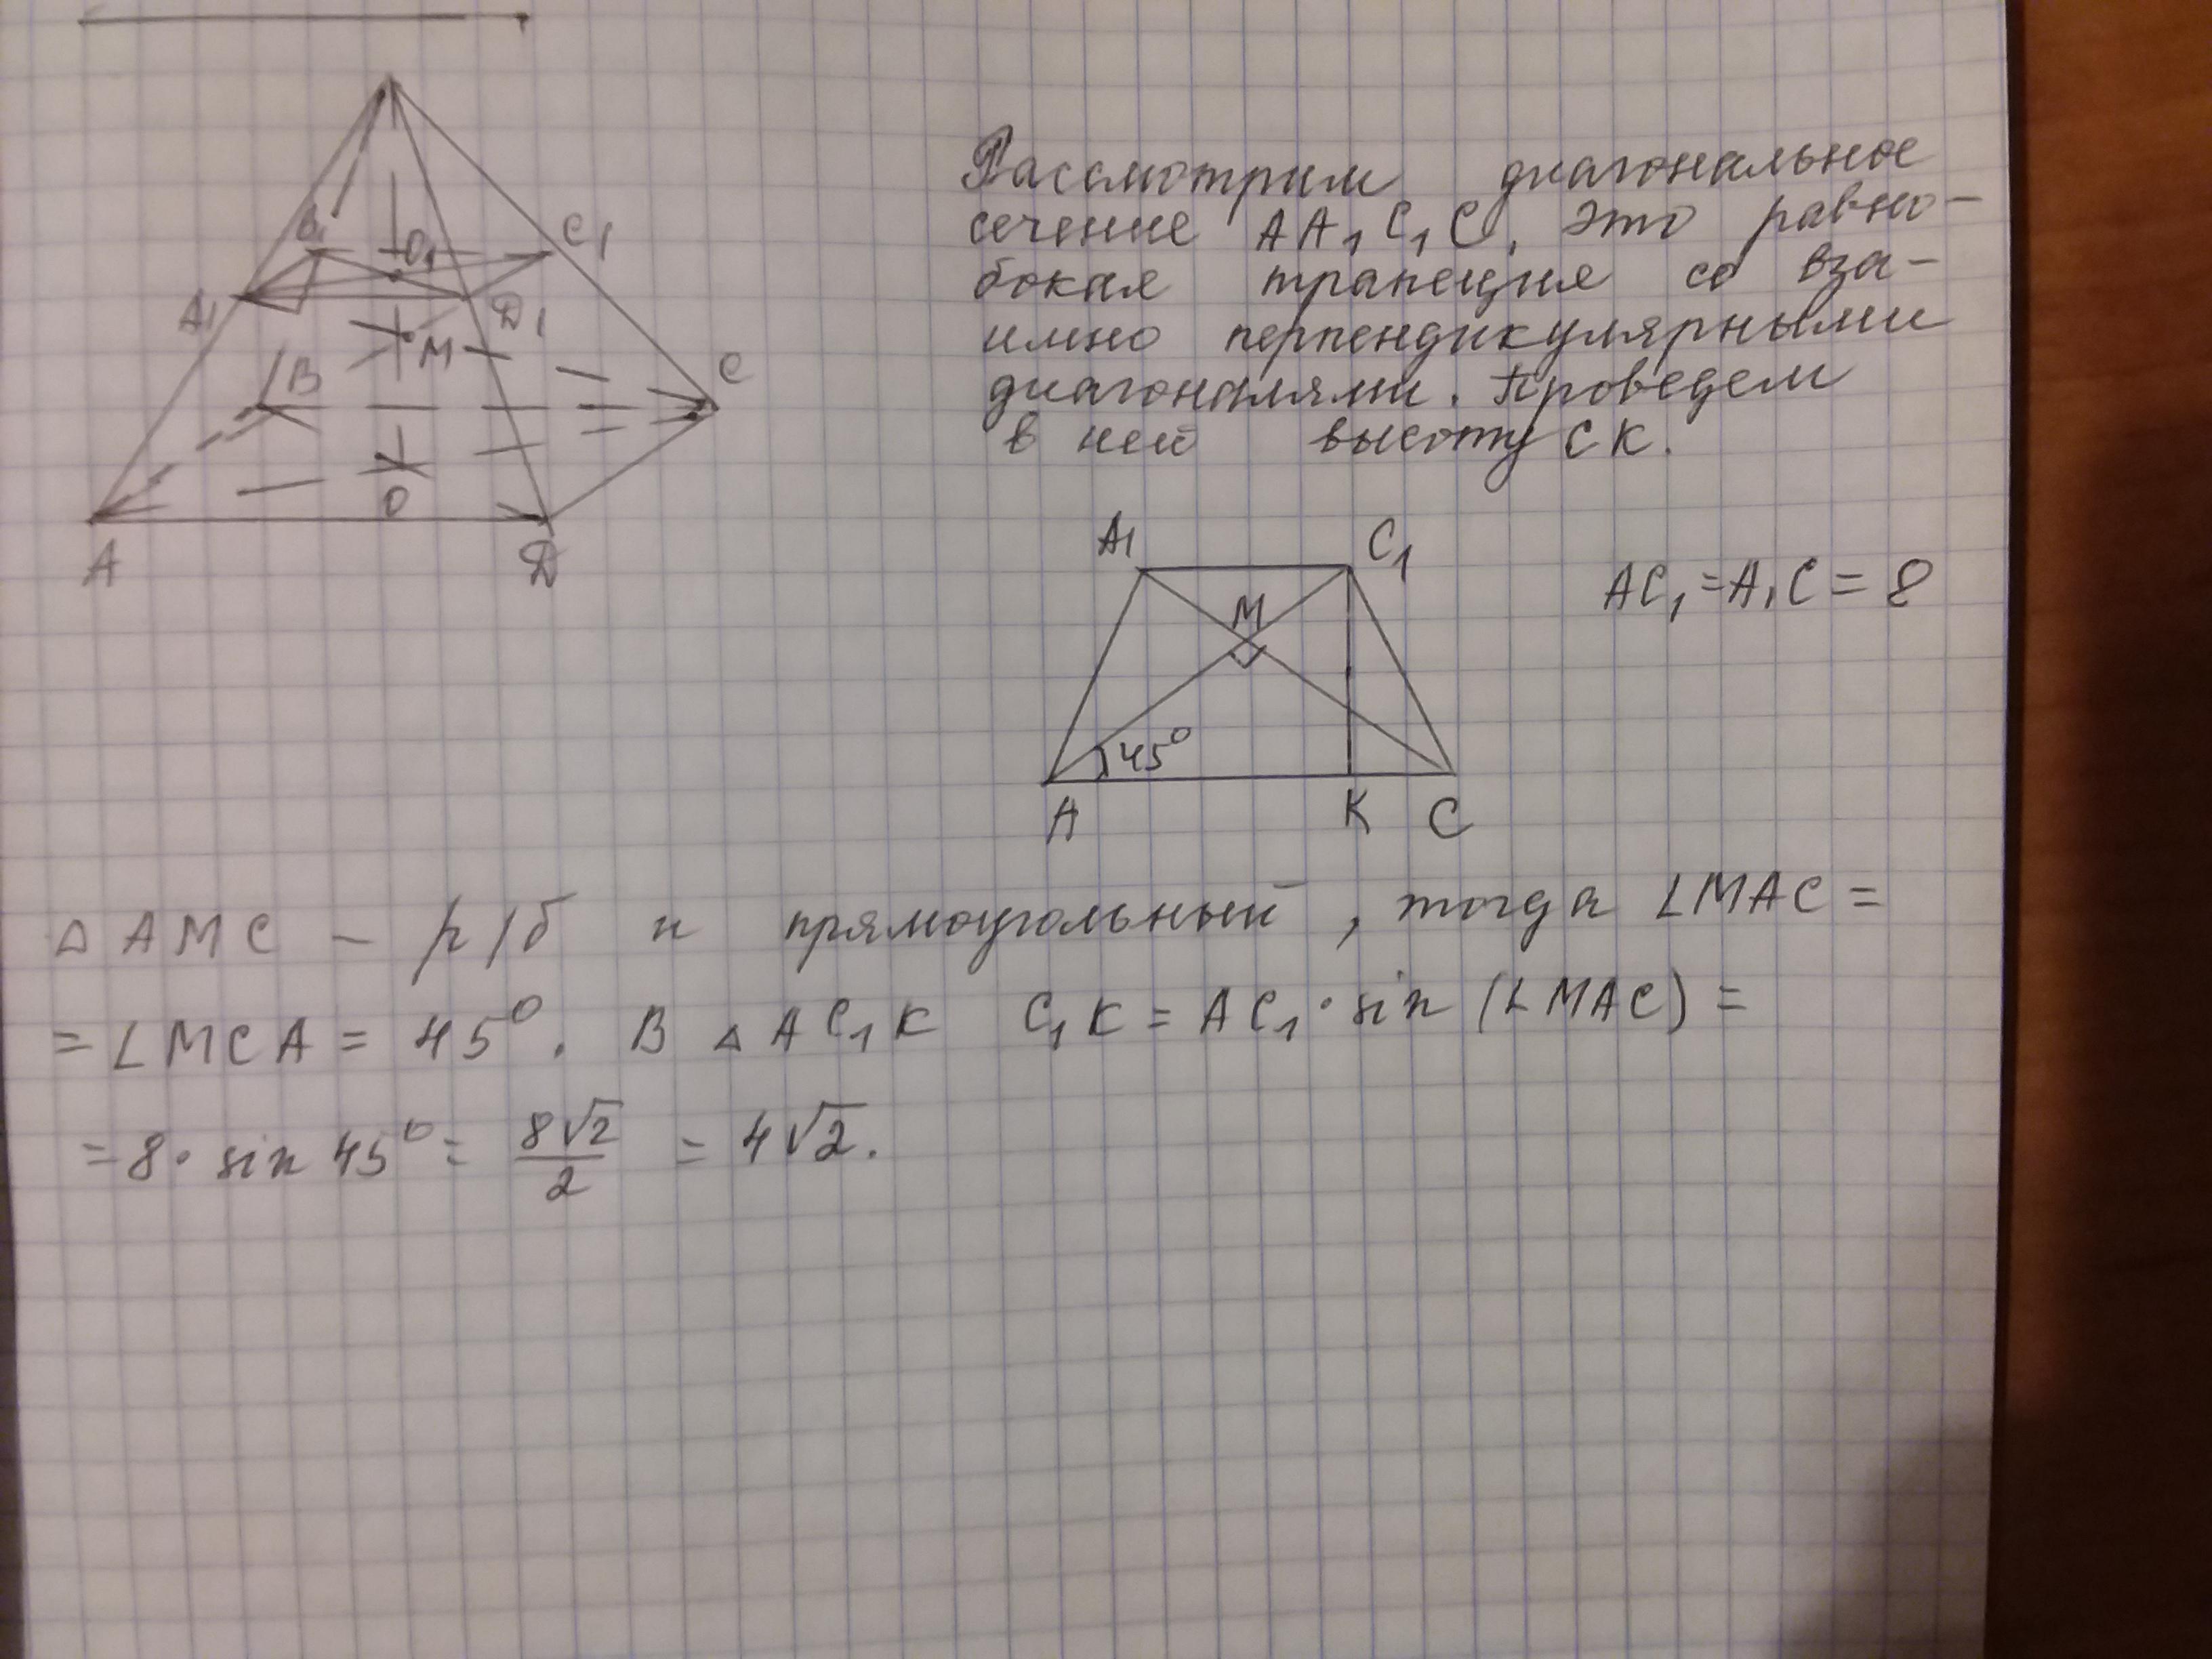 B₁
O₁
C₁
A₁
D₁
M
B
C
O
A
D
Рассмотрим диагональное
сечение AA₁C₁C. Это равно-
бокая трапеция со вза-
имно перпендикулярными
диагоналями. Проведем
в ней высоту CK.
A₁
C₁
AC₁=A₁C=8
M
45°
A
K
C
△AMC – р/б и прямоугольный, тогда ∠MAC=
=∠MCA=45°. В △AC₁K C₁K=AC₁·sin(∠MAC)=
=8·sin 45°= 8√2/2 = 4√2.